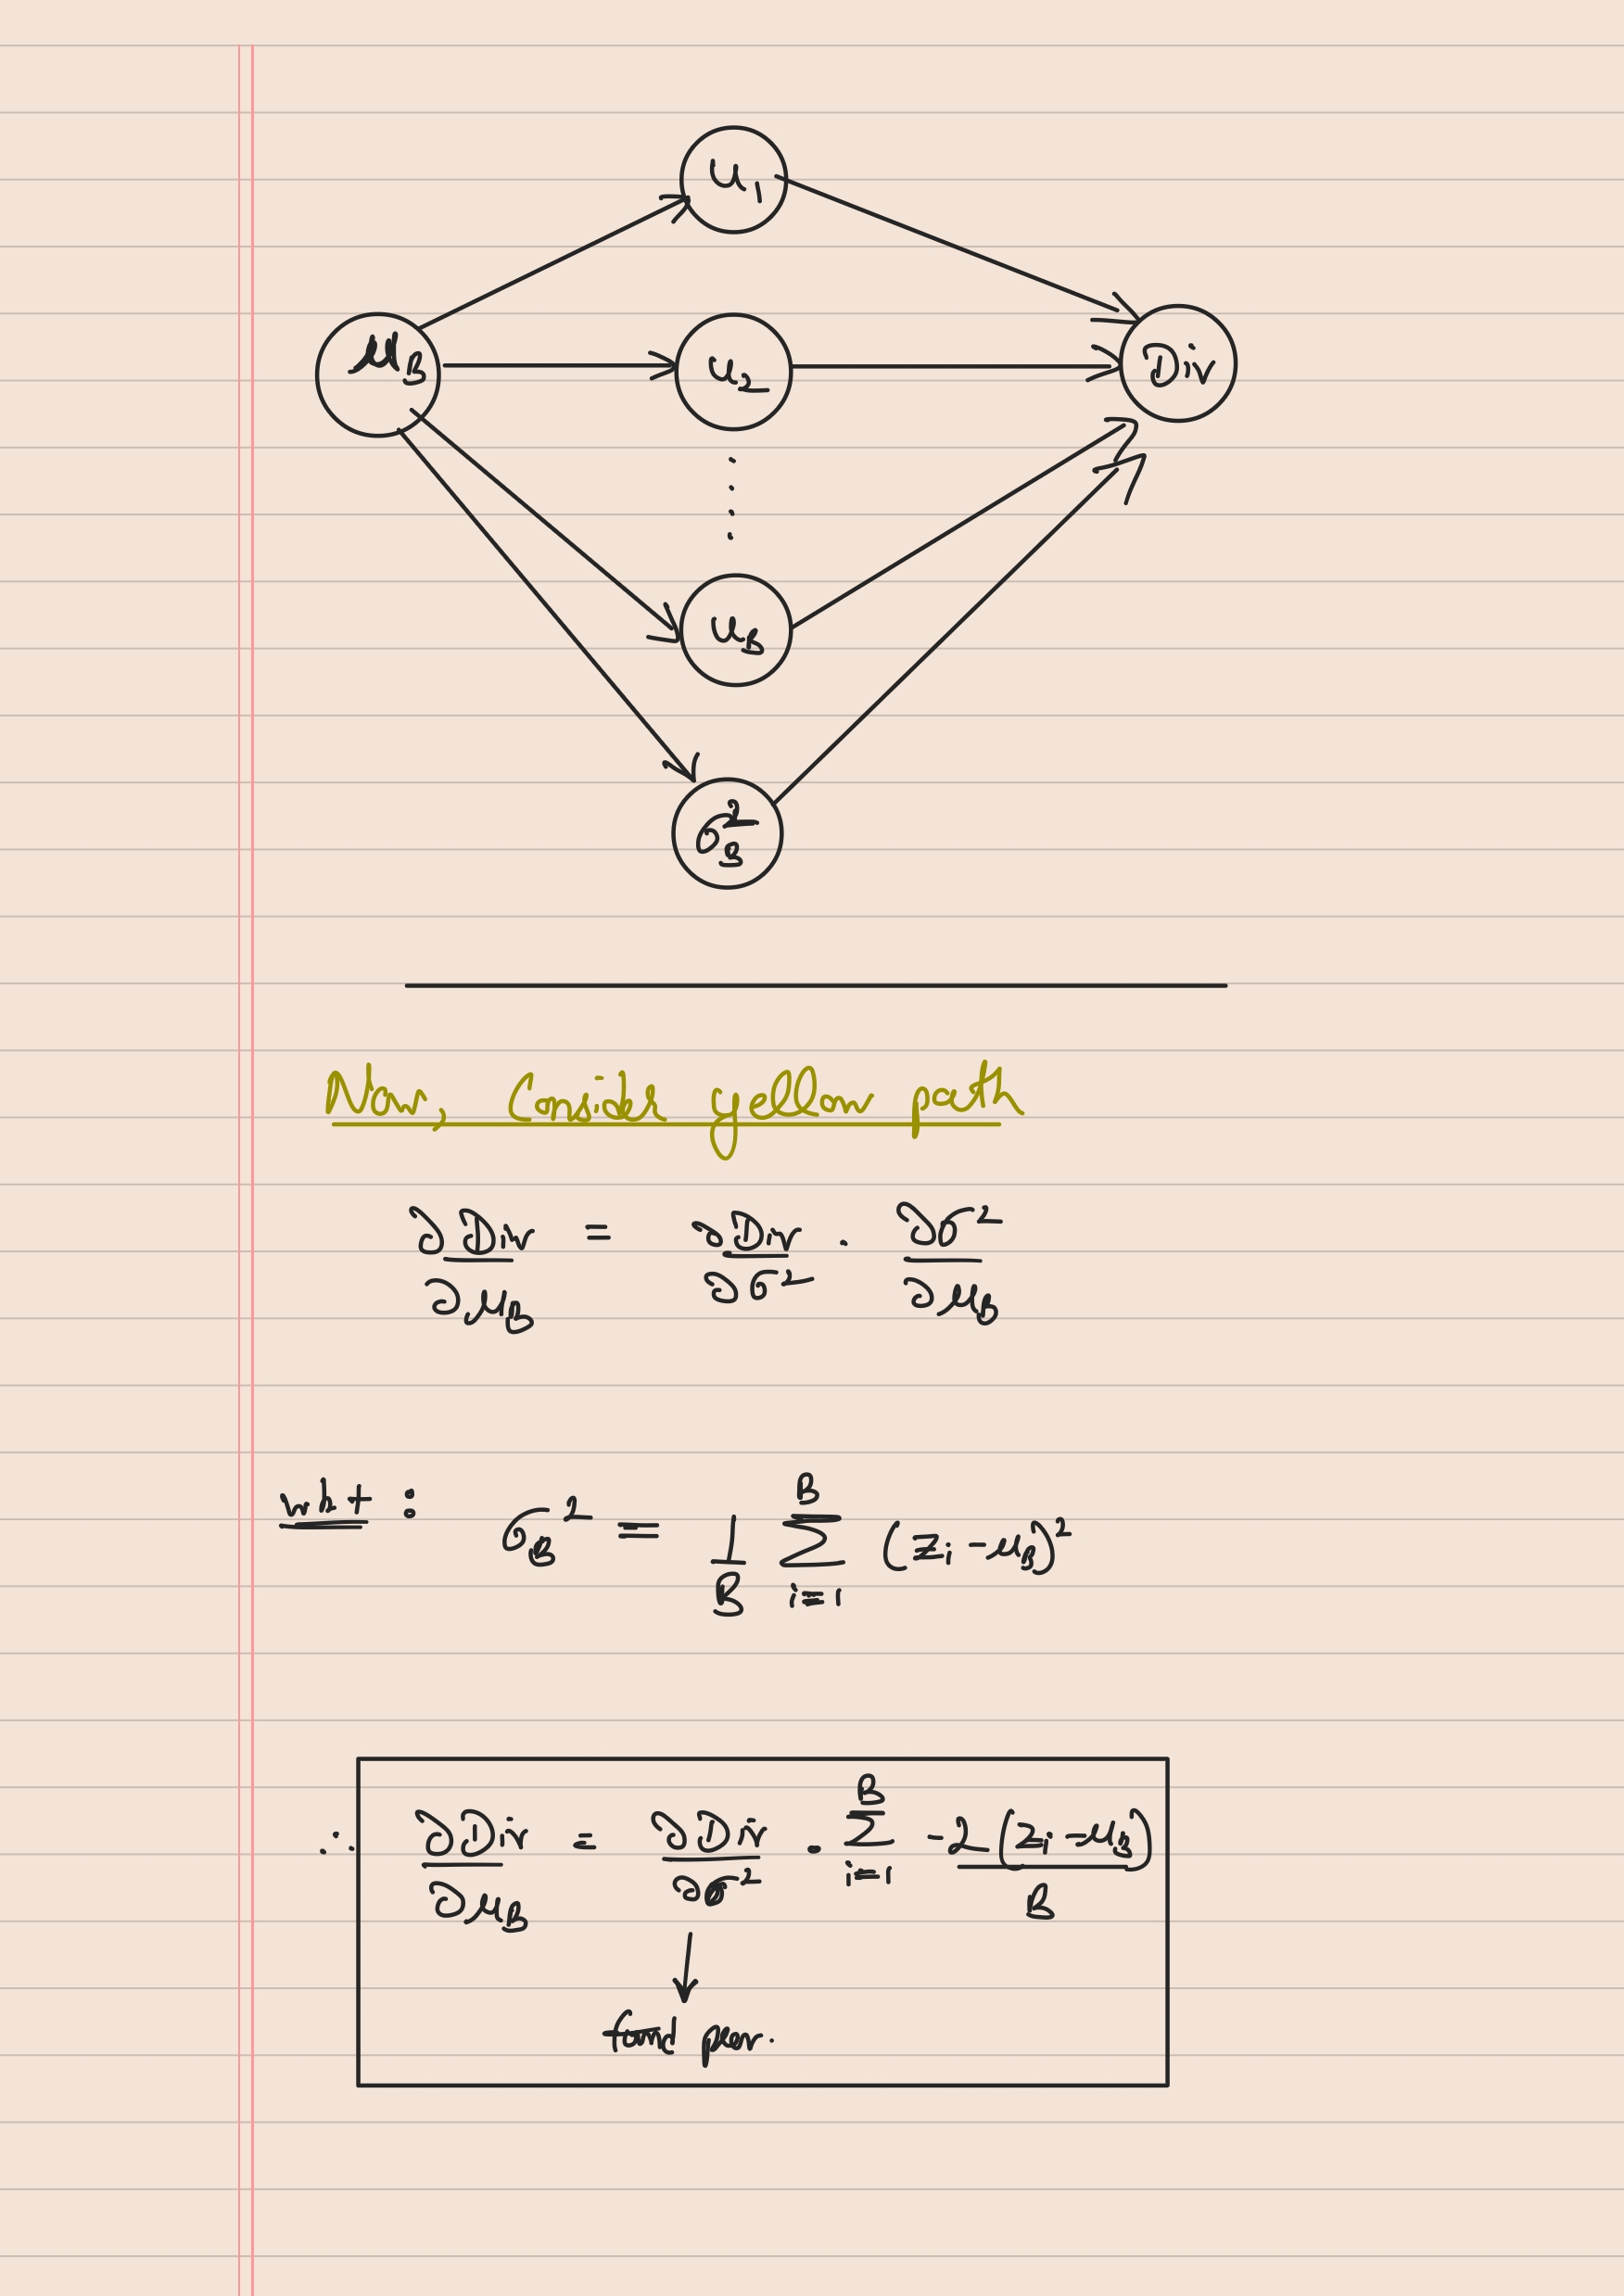 u₁
μ_B u₂ Div
u_B
σ²_B
Now, Consider yellow path
∂Div/∂μ_B = ∂Div/∂σ² · ∂σ²/∂μ_B
wkt : σ_B² = 1/B Σ_{i=1}^{B} (z_i - μ_B)²
∴ ∂Div/∂μ_B = ∂Div/∂σ² · Σ_{i=1}^{B} -2(z_i - μ_B)/B
found prev.